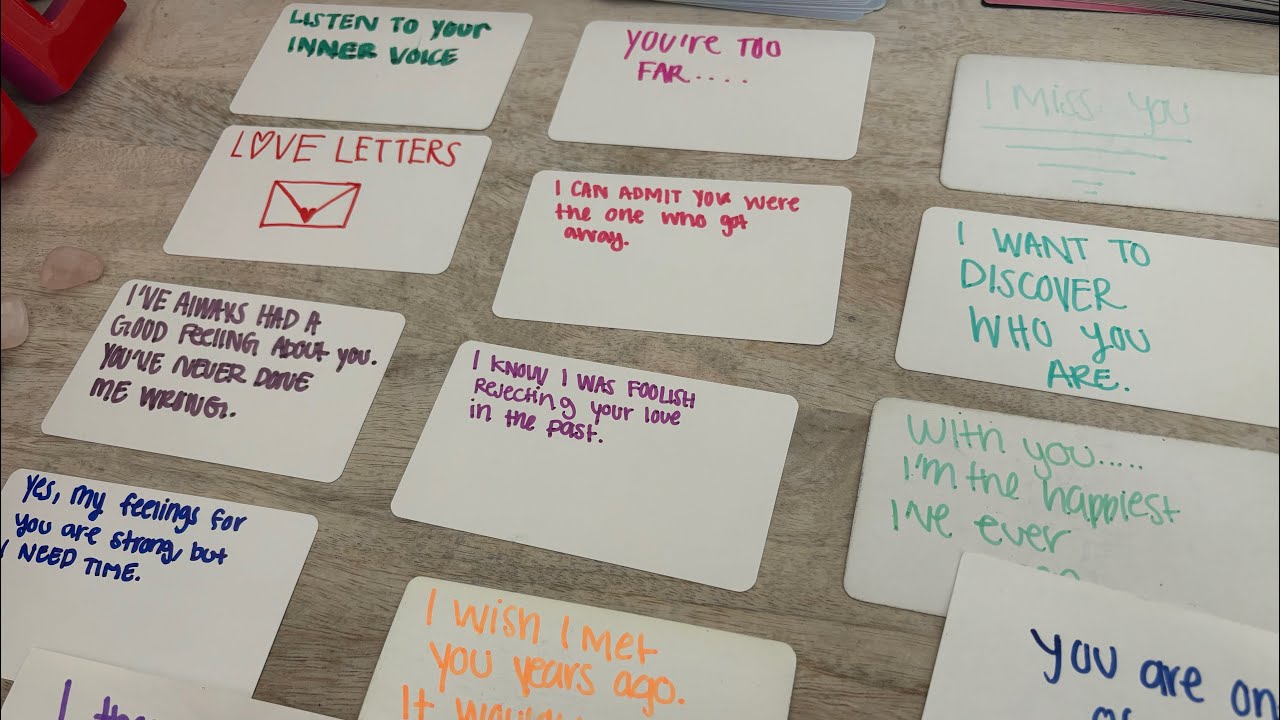 LISTEN TO YOUR
INNER VOICE
YOU'RE TOO
FAR....
I MISS YOU
LOVE LETTERS
I CAN ADMIT YOU WERE
the one who got
away.
I WANT TO
DISCOVER
WHO YOU
ARE.
I'VE ALWAYS HAD A
GOOD FEELING ABOUT YOU.
YOU'VE NEVER DONE
ME WRONG.
I KNOW I WAS FOOLISH
Rejecting your love
in the past.
With you.....
I'm the happiest
I've ever
yes, my feelings for
you are strong, but
I NEED TIME.
I wish I met
you years ago.
It
you are on
I